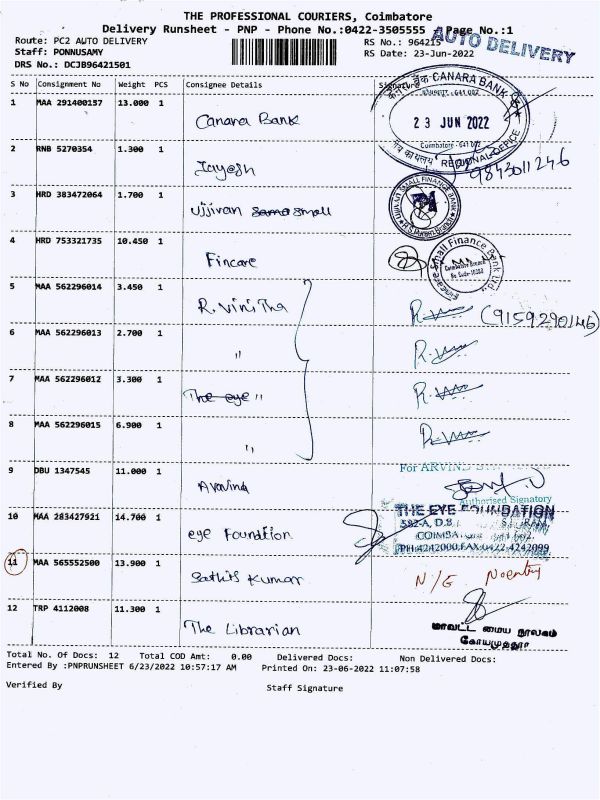 THE PROFESSIONAL COURIERS, Coimbatore
Delivery Runsheet - PNP - Phone No.:0422-3505555 Page No.:1
Route: PC2 AUTO DELIVERY
RS No.: 964215
AUTO DELIVERY
Staff: PONNUSAMY
RS Date: 23-Jun-2022
DRS No.: DCJB96421501
S No Consignment No Weight PCS Consignee Details Signature
1 MAA 291400157 13.000 1 Canara Bank
CANARA BANK
23 JUN 2022
Coimbatore - 641 002
REGIONAL OFFICE
2 RNB 5270354 1.300 1 Jayesh
9843011246
3 HRD 383472064 1.700 1 Ujjivan small
4 HRD 753321735 10.450 1 Fincare
Fincare Small Finance Bank Ltd
5 MAA 562296014 3.450 1 R. Vinitha (9159290146)
6 MAA 562296013 2.700 1 "
7 MAA 562296012 3.300 1 The eye "
8 MAA 562296015 6.900 1 "
9 DBU 1347545 11.000 1 Aravind
For ARVIND
Authorised Signatory
10 MAA 283427921 14.700 1 eye Foundation
THE EYE FOUNDATION
582-A, D.B.
PH:4242000,FAX:0422-4242099
11 MAA 565552500 13.900 1 Sathish Kumar N/G No entry
12 TRP 4112008 11.300 1 The Librarian
மாவட்ட மைய நூலகம்
கோயமுத்தூர்
Total No. Of Docs: 12 Total COD Amt: 0.00 Delivered Docs: Non Delivered Docs:
Entered By :PNPRUNSHEET 6/23/2022 10:57:17 AM Printed On: 23-06-2022 11:07:58
Verified By Staff Signature